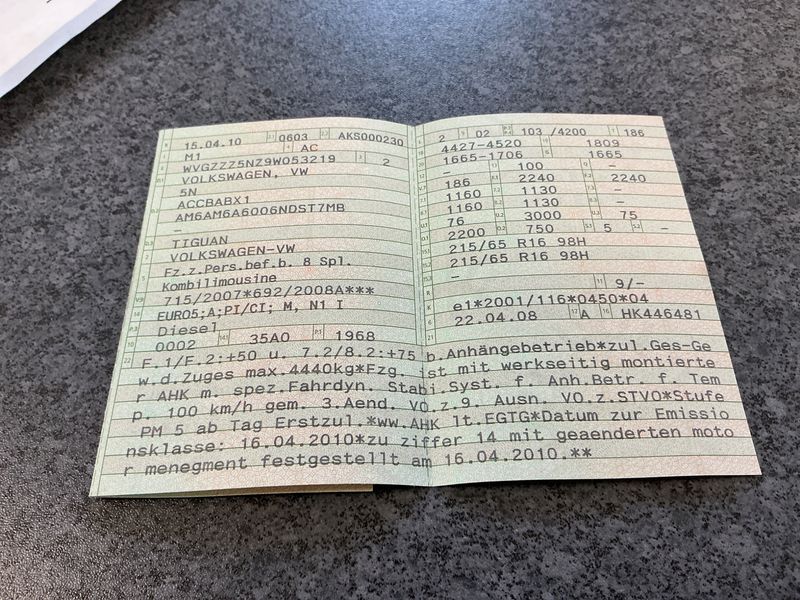 15.04.10 0603 AKS000230
M1 AC
WVGZZZ5NZ9W053219 2
VOLKSWAGEN, VW
5N
ACCBABX1
AM6AM6A6006NDST7MB
-
TIGUAN
VOLKSWAGEN-VW
Fz.z.Pers.bef.b. 8 Spl.
Kombilimousine
715/2007*692/2008A***
EURO5;A;PI/CI; M, N1 I
Diesel
0002 35A0 1968
2 02 103 /4200 186
4427-4520 1809
1665-1706 1665
- 100 -
186 2240 2240
1160 1130 -
1160 1130 -
76 3000 75
2200 750 5 -
215/65 R16 98H
215/65 R16 98H
-
9/-
e1*2001/116*0450*04
22.04.08 A HK446481
F.1/F.2:+50 u. 7.2/8.2:+75 b.Anhängebetrieb*zul.Ges-Ge
w.d.Zuges max.4440kg*Fzg. ist mit werkseitig montierte
r AHK m. spez.Fahrdyn. Stabi.Syst. f. Anh.Betr. f. Tem
p. 100 km/h gem. 3.Aend. VO.z.9. Ausn. VO.z.STVO*Stufe
PM 5 ab Tag Erstzul.*ww.AHK lt.EGTG*Datum zur Emissio
nsklasse: 16.04.2010*zu ziffer 14 mit geaenderten moto
r menegment festgestellt am 16.04.2010.**